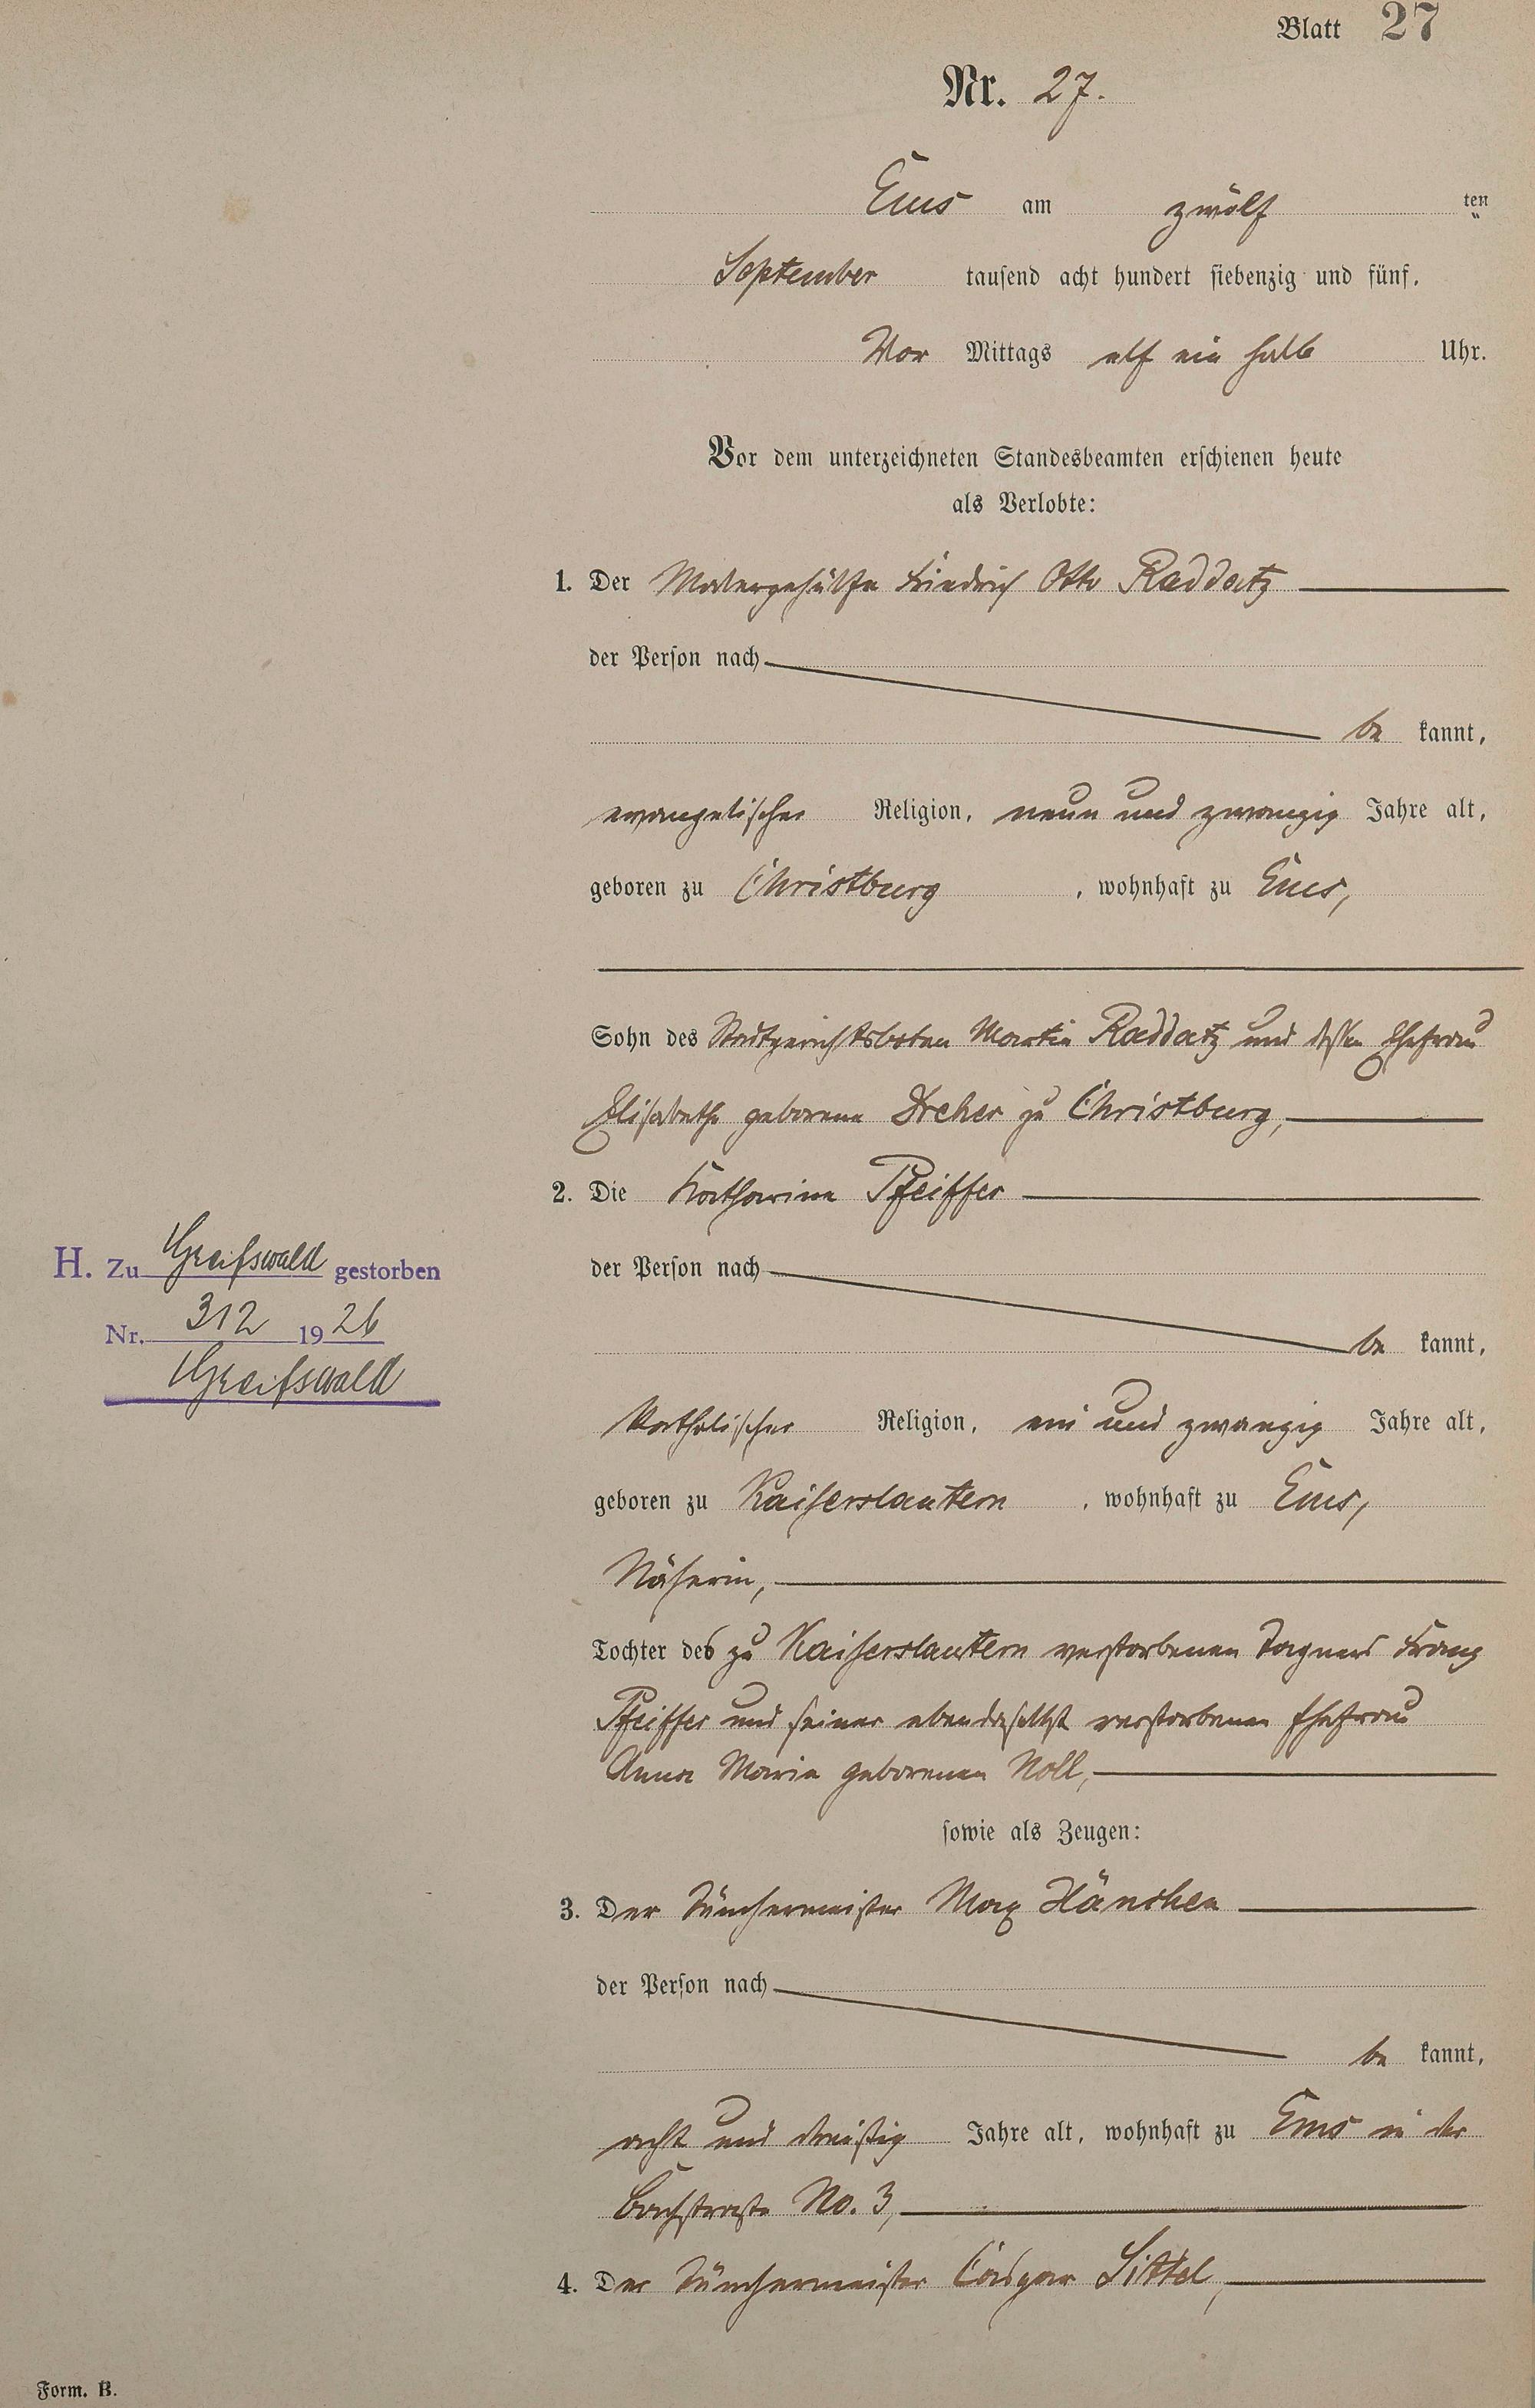 Blatt 27
Nr. 27.
Ems am zwölf ten
September tausend acht hundert siebenzig und fünf.
Vor Mittags elf ein halb Uhr.
Vor dem unterzeichneten Standesbeamten erschienen heute
als Verlobte:
1. Der Malergehülfe Friedrich Otto Raddatz
der Person nach
be kannt,
evangelischer Religion, neun und zwanzig Jahre alt,
geboren zu Christburg, wohnhaft zu Ems,
Sohn des Stadtgerichtsboten Martin Raddatz und dessen Ehefrau
Elisabethe geborene Dreher zu Christburg,
2. Die Katharina Pfeiffer
der Person nach
be kannt,
H. Zu Greifswald gestorben
Nr. 312 1926
Greifswald
katholischer Religion, ein und zwanzig Jahre alt,
geboren zu Kaiserslautern, wohnhaft zu Ems,
Näherin,
Tochter des zu Kaiserslautern verstorbenen Tagners Franz
Pfeiffer und seiner ebendaselbst verstorbenen Ehefrau
Anna Maria geborenen Noll,
sowie als Zeugen:
3. Der Tünchermeister Max Hänchen
der Person nach
be kannt,
acht und dreißig Jahre alt, wohnhaft zu Ems in der
Bachstraße No. 3,
4. Der Tünchermeister Caspar Sittel,
Form. B.